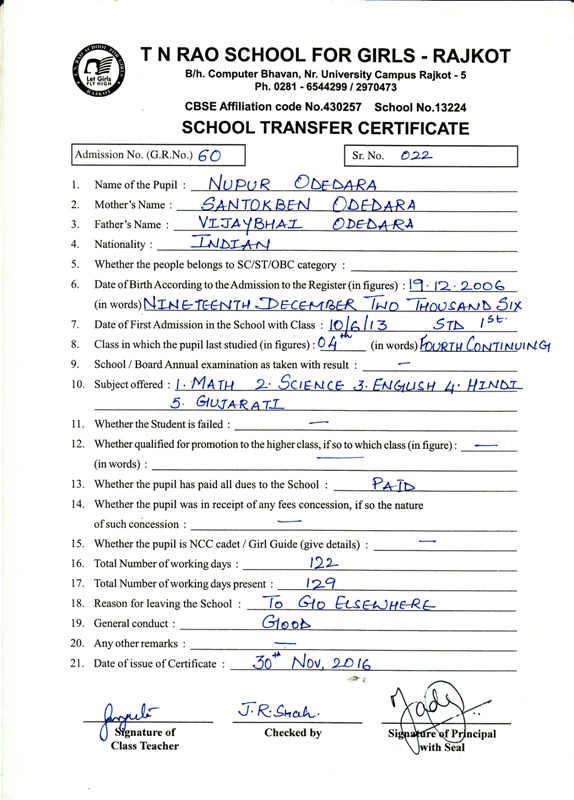 T N RAO SCHOOL FOR GIRLS - RAJKOT
T. N. RAO SCHOOL FOR GIRLS
Let Girls
FLY HIGH
RAJKOT
B/h. Computer Bhavan, Nr. University Campus Rajkot - 5
Ph. 0281 - 6544299 / 2970473
CBSE Affiliation code No.430257 School No.13224
SCHOOL TRANSFER CERTIFICATE
Admission No. (G.R.No.) 60
Sr. No. 022
1. Name of the Pupil : NUPUR ODEDARA
2. Mother's Name : SANTOKBEN ODEDARA
3. Father's Name : VIJAYBHAI ODEDARA
4. Nationality : INDIAN
5. Whether the people belongs to SC/ST/OBC category :
6. Date of Birth According to the Admission to the Register (in figures) : 19.12.2006
(in words) NINETEENTH DECEMBER TWO THOUSAND SIX
7. Date of First Admission in the School with Class : 10/6/13 STD 1st.
8. Class in which the pupil last studied (in figures) : 04th (in words) FOURTH CONTINUING
9. School / Board Annual examination as taken with result : —
10. Subject offered : 1. MATH 2. SCIENCE 3. ENGLISH 4. HINDI
5. GUJARATI
11. Whether the Student is failed : —
12. Whether qualified for promotion to the higher class, if so to which class (in figure) : —
(in words) : —
13. Whether the pupil has paid all dues to the School : PAID
14. Whether the pupil was in receipt of any fees concession, if so the nature
of such concession : —
15. Whether the pupil is NCC cadet / Girl Guide (give details) : —
16. Total Number of working days : 122
17. Total Number of working days present : 129
18. Reason for leaving the School : TO GO ELSEWHERE
19. General conduct : GOOD
20. Any other remarks : —
21. Date of issue of Certificate : 30th Nov, 2016
J.R.Shah.
Signature of
Class Teacher
Checked by
Signature of Principal
with Seal